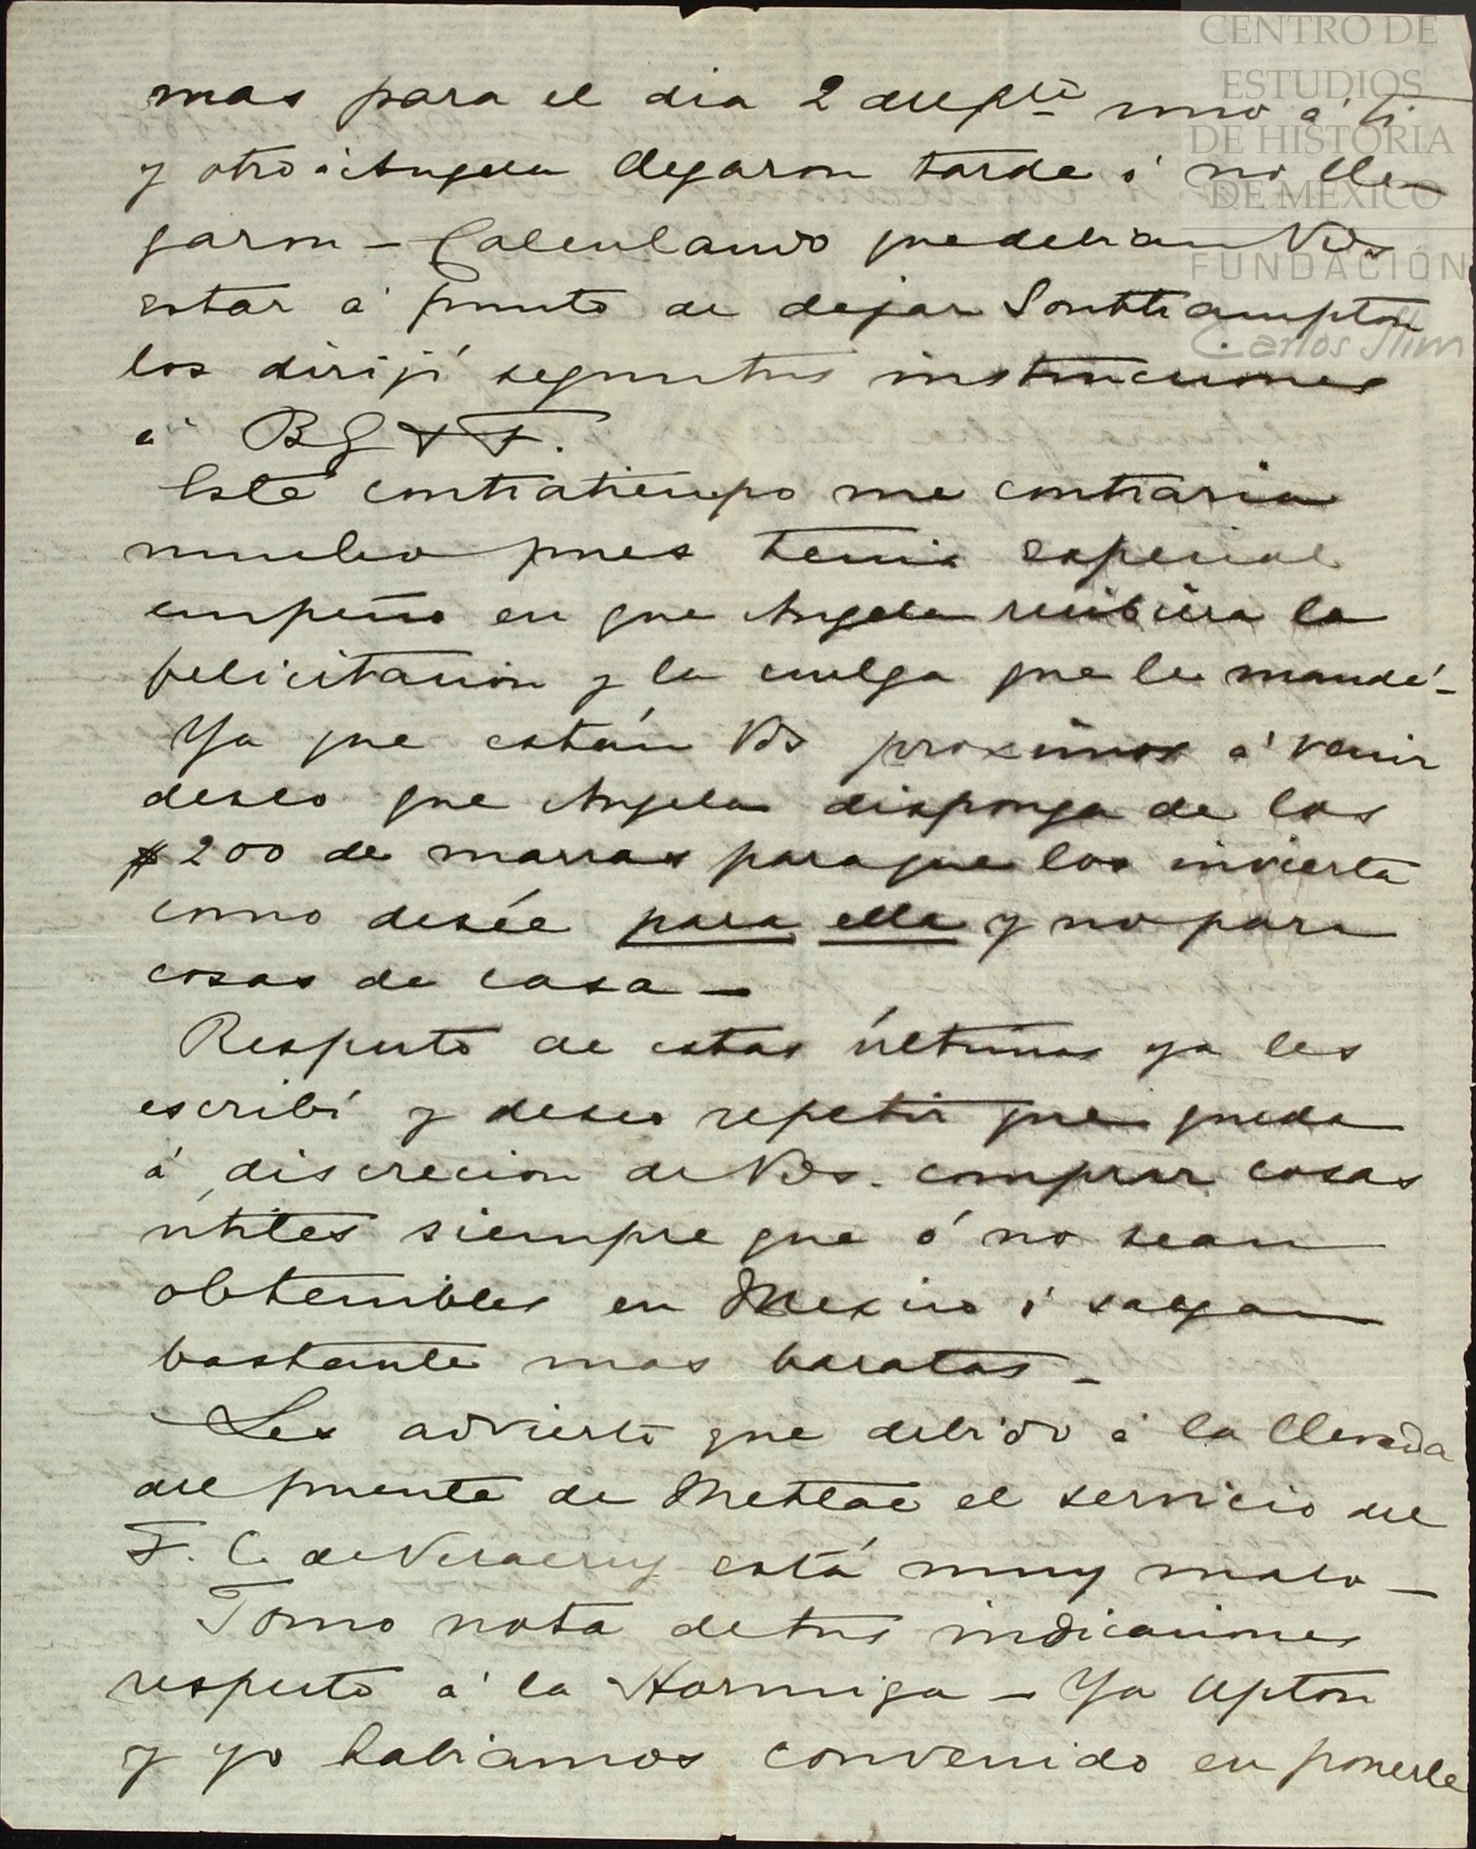 CENTRO DE
ESTUDIOS
DE HISTORIA
DE MÉXICO
FUNDACIÓN
Carlos Slim
mas para el dia 2 del pte uno á ti
y otro á Angela llegaron tarde ó no lle-
garon – Calculando que debian Vds
estar á punto de dejar Southampton
los dirijí segun tus instrucciones
á BG & F.
Este contratiempo me contraria
mucho pues tenia especial
empeño en que Angela recibiera la
felicitacion y la cuelga que le mandé –
Ya que están Vds proximos á venir
deseo que Angela disponga de los
$200 de marras para que los invierta
como desée para ella y no para
cosas de casa –
Respecto de estas últimas ya les
escribí y deseo repetir que queda
á discrecion de Vds. comprar cosas
útiles siempre que ó no sean
obtenibles en Mexico ó salgan
bastante mas baratas –
Les advierto que debido á la llevada
del puente de Metlac el servicio del
F. C. de Veracruz está muy malo –
Tomo nota de tus indicaciones
respecto á la Hormiga – Ya Upton
y yo habiamos convenido en ponerle